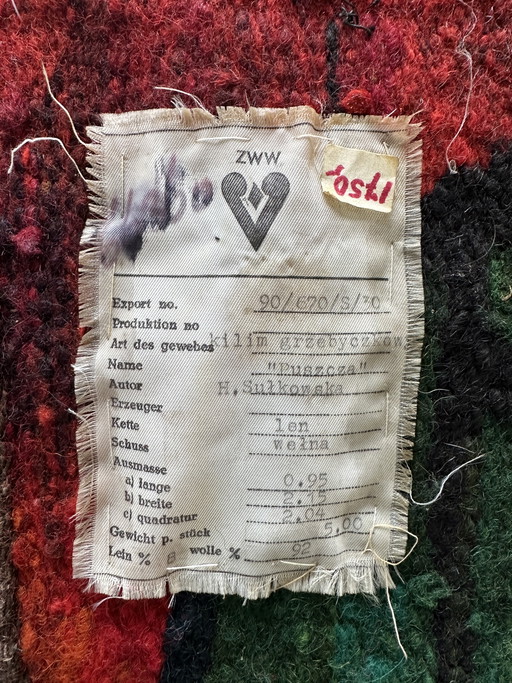 ZWW
1750,-
Export no. 90/670/S/30
Produktion no
Art des gewebes kilim grzebyczkow
Name "Puszcza"
Autor H.Sułkowska
Erzeuger
Kette len
Schuss wełna
Ausmasse
a) lange 0.95
b) breite 2.15
c) quadratur 2.04
Gewicht p. stück 5,00
Lein % 8 wolle % 92